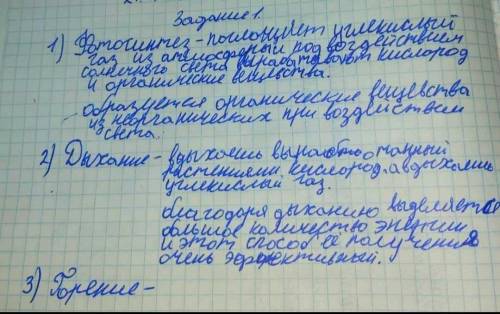 Задание 1.
1) Фотосинтез - поглощает углекислый
газ из атмосферы и под воздействием
солнечного света вырабатывают кислород
и органические вещества.
образуется органические вещевства
из неорганических при воздействием
света.
2) Дыхание - вдыхаешь вырабтотанный
растениями, кислород, а выдыхаешь
углекислый газ.
благодоря дыханию выделяется
большое количество энергии
и этот способ её получения
очень эффективный.
3) Горение -